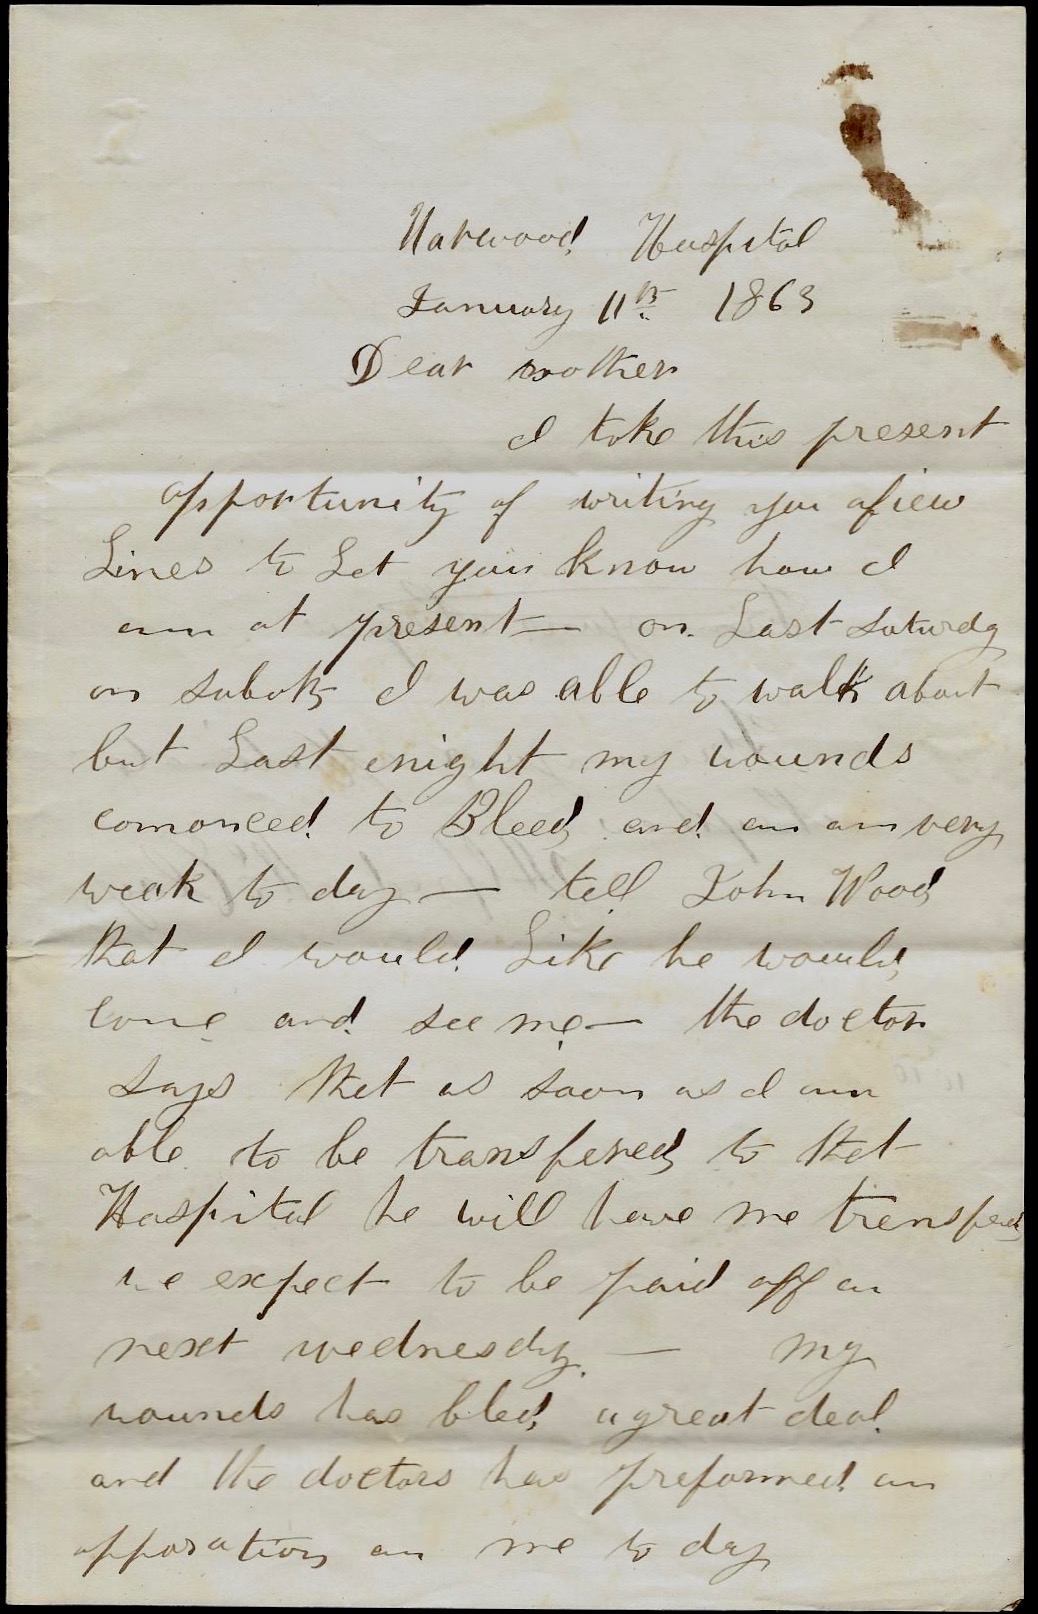 Harwood Hospital
January 11th 1863
Dear mother
I take this present
opportunity of writing you afiew
Lines to Let you know how I
am at present — on Last Saturdy
on I was able to walk about
but Last enight my wounds
comonced to Bleed and am am very
weak to day — tell John Wood
that I would Like he would
come and see me — the doctor
says that as soon as I am
able to be transfered to that
Hospital he will have me transfered
we expect to be paid off on
next wednesdy — my
wounds has bled agreat deal
and the doctors has preformed an
opporation on me to day